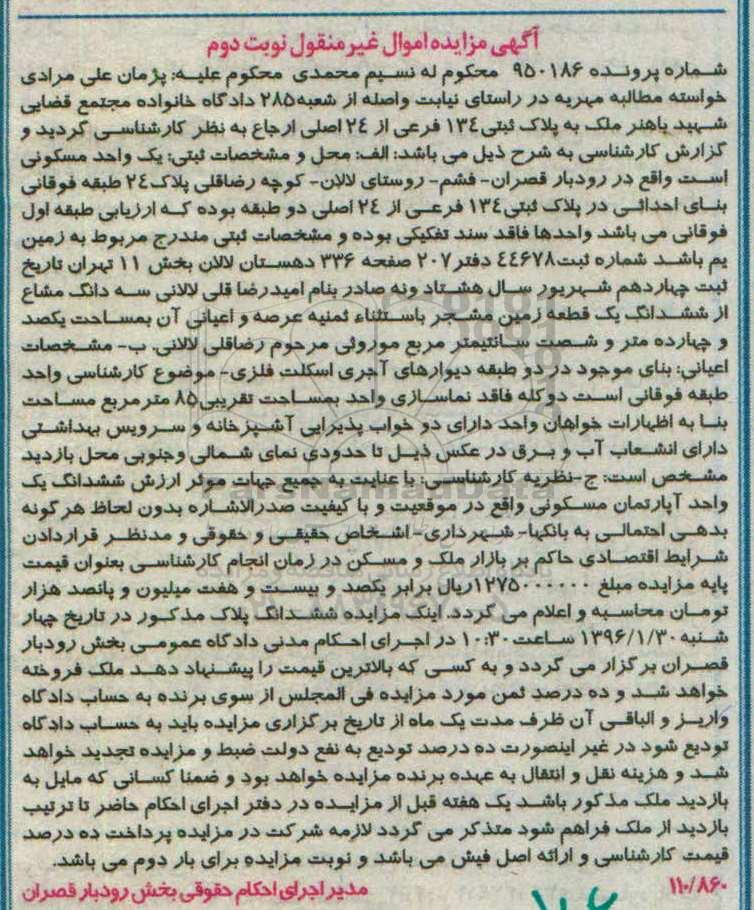 آگهی مزایده اموال غیر منقول نوبت دوم
شماره پرونده ۹۵۰۱۸۶ محکوم له نسیم محمدی محکوم علیه: پژمان علی مرادی
خواسته مطالبه مهریه در راستای نیابت واصله از شعبه۲۸۵ دادگاه خانواده مجتمع قضایی
شهید باهنر ملک به پلاک ثبتی۱۳٤ فرعی از ۲٤ اصلی ارجاع به نظر کارشناسی گردید و
گزارش کارشناسی به شرح ذیل می باشد: الف: محل و مشخصات ثبتی: یک واحد مسکونی
است واقع در رودبار قصران- فشم- روستای لالان- کوچه رضاقلی پلاک۲٤ طبقه فوقانی
بنای احداثی در پلاک ثبتی۱۳٤ فرعی از ۲٤ اصلی دو طبقه بوده که ارزیابی طبقه اول
فوقانی می باشد واحدها فاقد سند تفکیکی بوده و مشخصات ثبتی مندرج مربوط به زمین
یم باشد شماره ثبت٤٤۶۷۸ دفتر۲۰۷ صفحه ۳۳۶ دهستان لالان بخش ۱۱ تهران تاریخ
ثبت چهاردهم شهریور سال هشتاد ونه صادر بنام امیدرضا قلی لالانی سه دانگ مشاع
از ششدانگ یک قطعه زمین مشجر باستثناء ثمنیه عرصه و اعیانی آن بمساحت یکصد
و چهارده متر و شصت سانتیمتر مربع موروثی مرحوم رضاقلی لالانی. ب- مشخصات
اعیانی: بنای موجود در دو طبقه دیوارهای آجری اسکلت فلزی- موضوع کارشناسی واحد
طبقه فوقانی است دوکله فاقد نماسازی واحد بمساحت تقریبی۸۵ مترمربع مساحت
بنا به اظهارات خواهان واحد دارای دو خواب پذیرایی آشپزخانه و سرویس بهداشتی
دارای انشعاب آب و برق در عکس ذیل تا حدودی نمای شمالی وجنوبی محل بازدید
مشخص است: ج-نظریه کارشناسی: با عنایت به جمیع جهات موثر ارزش ششدانگ یک
واحد آپارتمان مسکونی واقع در موقعیت و با کیفیت صدرالاشاره بدون لحاظ هرگونه
بدهی احتمالی به بانکها- شهرداری- اشخاص حقیقی و حقوقی و مدنظر قراردادن
شرایط اقتصادی حاکم بر بازار ملک و مسکن در زمان انجام کارشناسی بعنوان قیمت
پایه مزایده مبلغ ۱۲۷۵۰۰۰۰۰۰ریال برابر یکصد و بیست و هفت میلیون و پانصد هزار
تومان محاسبه و اعلام می گردد. اینک مزایده ششدانگ پلاک مذکور در تاریخ چهار
شنبه ۱۳۹۶/۱/۳۰ ساعت۱۰:۳۰ در اجرای احکام مدنی دادگاه عمومی بخش رودبار
قصران برگزار می گردد و به کسی که بالاترین قیمت را پیشنهاد دهد ملک فروخته
خواهد شد و ده درصد ثمن مورد مزایده فی المجلس از سوی برنده به حساب دادگاه
واریز و الباقی آن ظرف مدت یک ماه از تاریخ برگزاری مزایده باید به حساب دادگاه
تودیع شود در غیر اینصورت ده درصد تودیع به نفع دولت ضبط و مزایده تجدید خواهد
شد و هزینه نقل و انتقال به عهده برنده مزایده خواهد بود و ضمنا کسانی که مایل به
بازدید ملک مذکور باشد یک هفته قبل از مزایده در دفتر اجرای احکام حاضر تا ترتیب
بازدید از ملک فراهم شود متذکر می گردد لازمه شرکت در مزایده پرداخت ده درصد
قیمت کارشناسی و ارائه اصل فیش می باشد و نوبت مزایده برای بار دوم می باشد.
۱۱۰/۸۶۰ مدیر اجرای احکام حقوقی بخش رودبار قصران